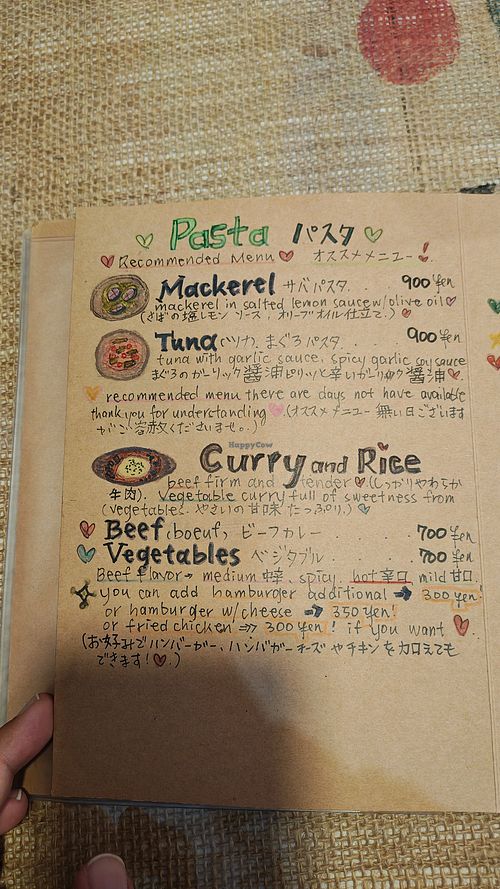 Pasta パスタ
Recommended Menu オススメメニュー!
Mackerel サバパスタ... 900 Yen
mackerel in salted lemon sauce w/olive oil
(さばの塩レモンソース, オリーブオイル仕立て.)
Tuna (ツナ). まぐろパスタ 900 Yen
tuna with garlic sauce, spicy garlic soy sauce
まぐろのガーリック醤油ピリッと辛いガーリック醤油
recommended menu there are days not have available
thank you for understanding (オススメメニュー 無い日ございます
がご容赦くださいませ..)
HappyCow
Curry and Rice
beef firm and tender (しっかりやわらか
牛肉). Vegetable curry full of sweetness from
(vegetables. やさいの甘味 たっぷり.)
Beef (boeuf). ビーフカレー 700 Yen
Vegetables ベジタブル 700 Yen
Beef flavor→ medium 中辛, spicy, hot 辛口, mild 甘口.
you can add hamburger additional → 300 yen!
or hamburger w/cheese → 350 yen!
or fried chicken → 300 yen! if you want
(お好みでハンバーガー、ハンバガーチーズやチキンを加えても
できます!.)